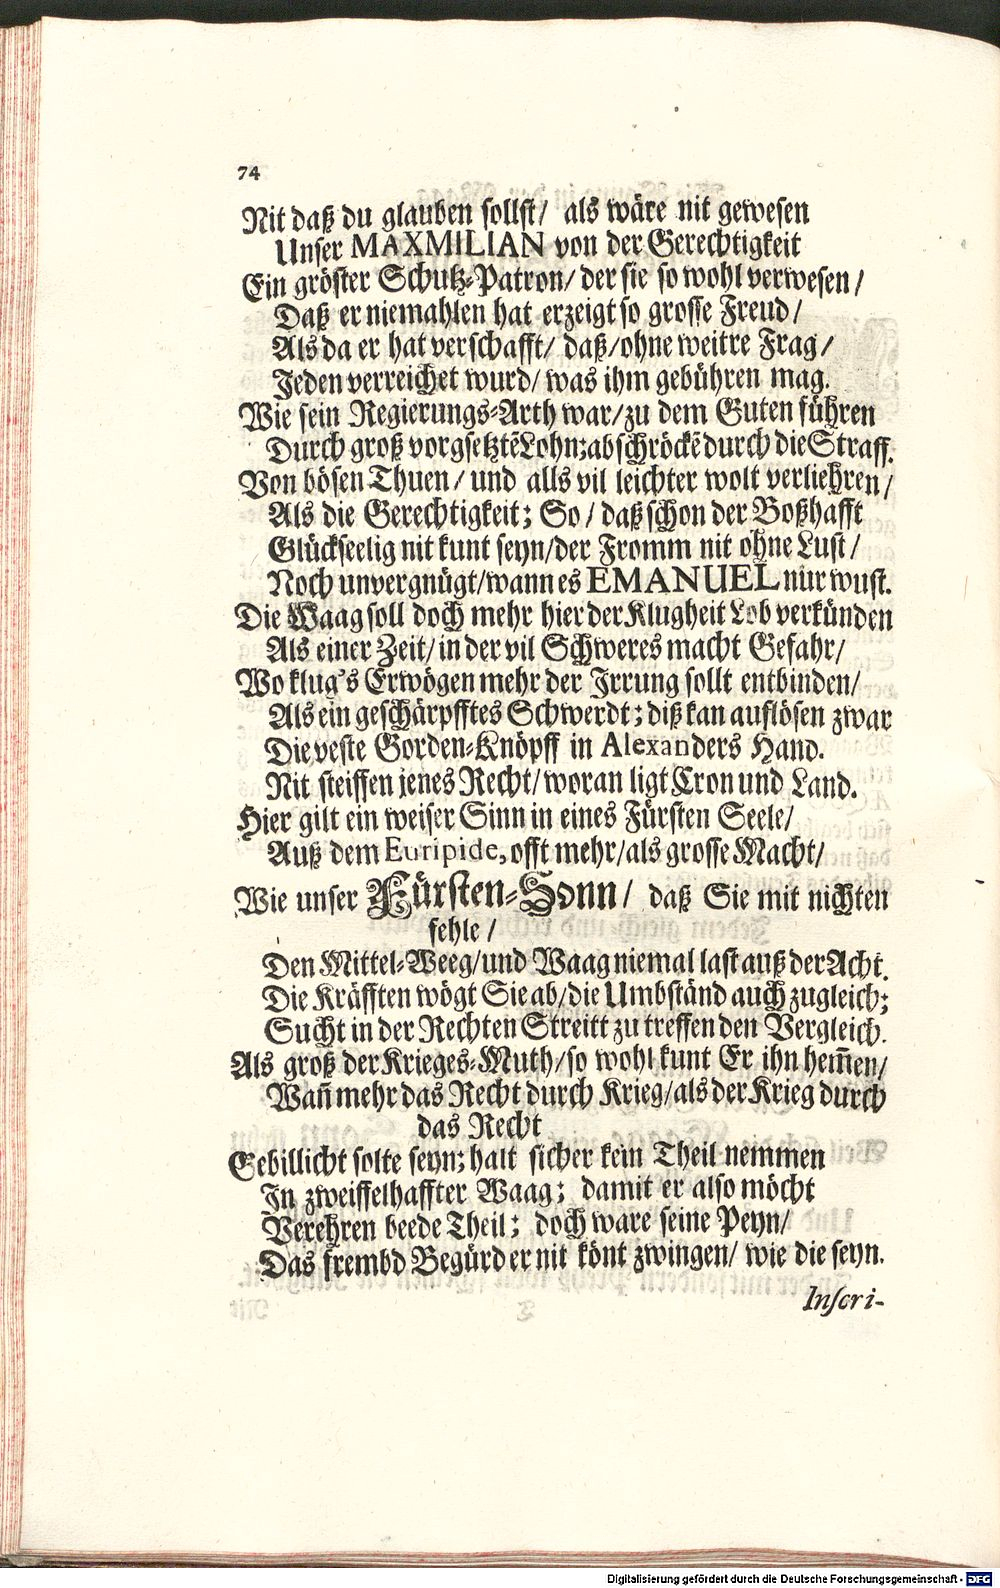 74
Nit daß du glauben sollst/ als wäre nit gewesen
Unser MAXMILIAN von der Gerechtigkeit
Ein gröster Schutz-Patron/ der sie so wohl verwesen/
Daß er niemahlen hat erzeigt so grosse Freud/
Als da er hat verschafft/ daß/ohne weitre Frag/
Jeden verreichet wurd/ was ihm gebühren mag.
Wie sein Regierungs-Arth war/zu dem Guten führen
Durch groß vorgsetztē Lohn; abschröckē durch die Straff.
Von bösen Thuen/ und alls vil leichter wolt verliehren/
Als die Gerechtigkeit; So/ daß schon der Boßhafft
Glückseelig nit kunt seyn/der Fromm nit ohne Lust/
Noch unvergnügt/wann es EMANUEL nur wust.
Die Waag soll doch mehr hier der Klugheit Lob verkünden
Als einer Zeit/ in der vil Schweres macht Gefahr/
Wo klug's Erwögen mehr der Irrung sollt entbinden/
Als ein geschärpfftes Schwerdt; diß kan auflösen zwar
Die veste Gorden-Knöpff in Alexanders Hand.
Nit steiffen jenes Recht/ woran ligt Cron und Land.
Hier gilt ein weiser Sinn in eines Fürsten Seele/
Auß dem Euripide, offt mehr/als grosse Macht/
Wie unser Fürsten-Sonn/ daß Sie mit nichten
fehle/
Den Mittel-Weeg/und Waag niemal last auß der Acht.
Die Kräfften wögt Sie ab/die Umbständ auch zugleich;
Sucht in der Rechten Streitt zu treffen den Vergleich.
Als groß der Krieges-Muth/so wohl kunt Er ihn hem̄en/
Wan̄ mehr das Recht durch Krieg/als der Krieg durch
das Recht
Gebillicht solte seyn; halt sicher kein Theil nemmen
In zweiffelhaffter Waag; damit er also möcht
Verehren beede Theil; doch ware seine Peyn/
Das frembd Begürd er nit könt zwingen/ wie die seyn.
Inscri-
Digitalisierung gefördert durch die Deutsche Forschungsgemeinschaft - DFG